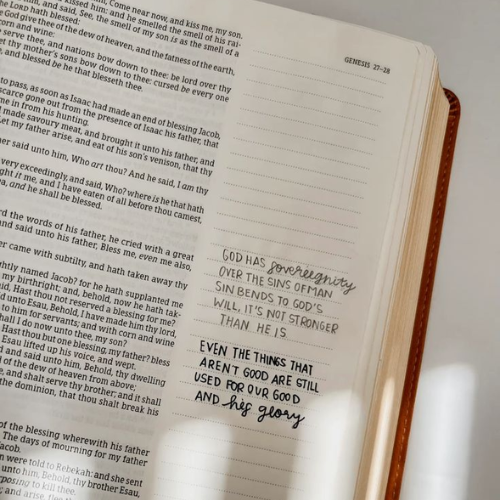 him, Come near now, and kiss me, my son.
kissed him: and he smelled the smell of his rai-
him, and said, See, the smell of my son is as the smell of a
the LORD hath blessed:
God give thee of the dew of heaven, and the fatness of the earth,
corn and wine:
serve thee, and nations bow down to thee: be lord over thy
let thy mother's sons bow down to thee: cursed be every one
and blessed be he that blesseth thee.
to pass, as soon as Isaac had made an end of blessing Jacob,
scarce gone out from the presence of Isaac his father, that
me in from his hunting.
made savoury meat, and brought it unto his father, and
Let my father arise, and eat of his son's venison, that thy
her said unto him, Who art thou? And he said, I am thy
very exceedingly, and said, Who? where is he that hath
ght it me, and I have eaten of all before thou camest,
a, and he shall be blessed.
rd the words of his father, he cried with a great
nd said unto his father, Bless me, even me also,
er came with subtilty, and hath taken away thy
ghtly named Jacob? for he hath supplanted me
my birthright; and, behold, now he hath tak-
id, Hast thou not reserved a blessing for me?
d unto Esau, Behold, I have made him thy lord,
to him for servants; and with corn and wine
I do now unto thee, my son?
Hast thou but one blessing, my father? bless
Esau lifted up his voice, and wept.
d and said unto him, Behold, thy dwelling
of the dew of heaven from above;
e, and shalt serve thy brother; and it shall
the dominion, that thou shalt break his
of the blessing wherewith his father
The days of mourning for my father
acob.
n were told to Rebekah: and she sent
unto him, Behold, thy brother Esau,
rposing to kill thee.
GENESIS 27–28
GOD HAS sovereignty
OVER THE SINS OF MAN
SIN BENDS TO GOD'S
WILL, IT'S NOT STRONGER
THAN HE IS
EVEN THE THINGS THAT
AREN'T GOOD ARE STILL
USED FOR OUR GOOD
AND his glory